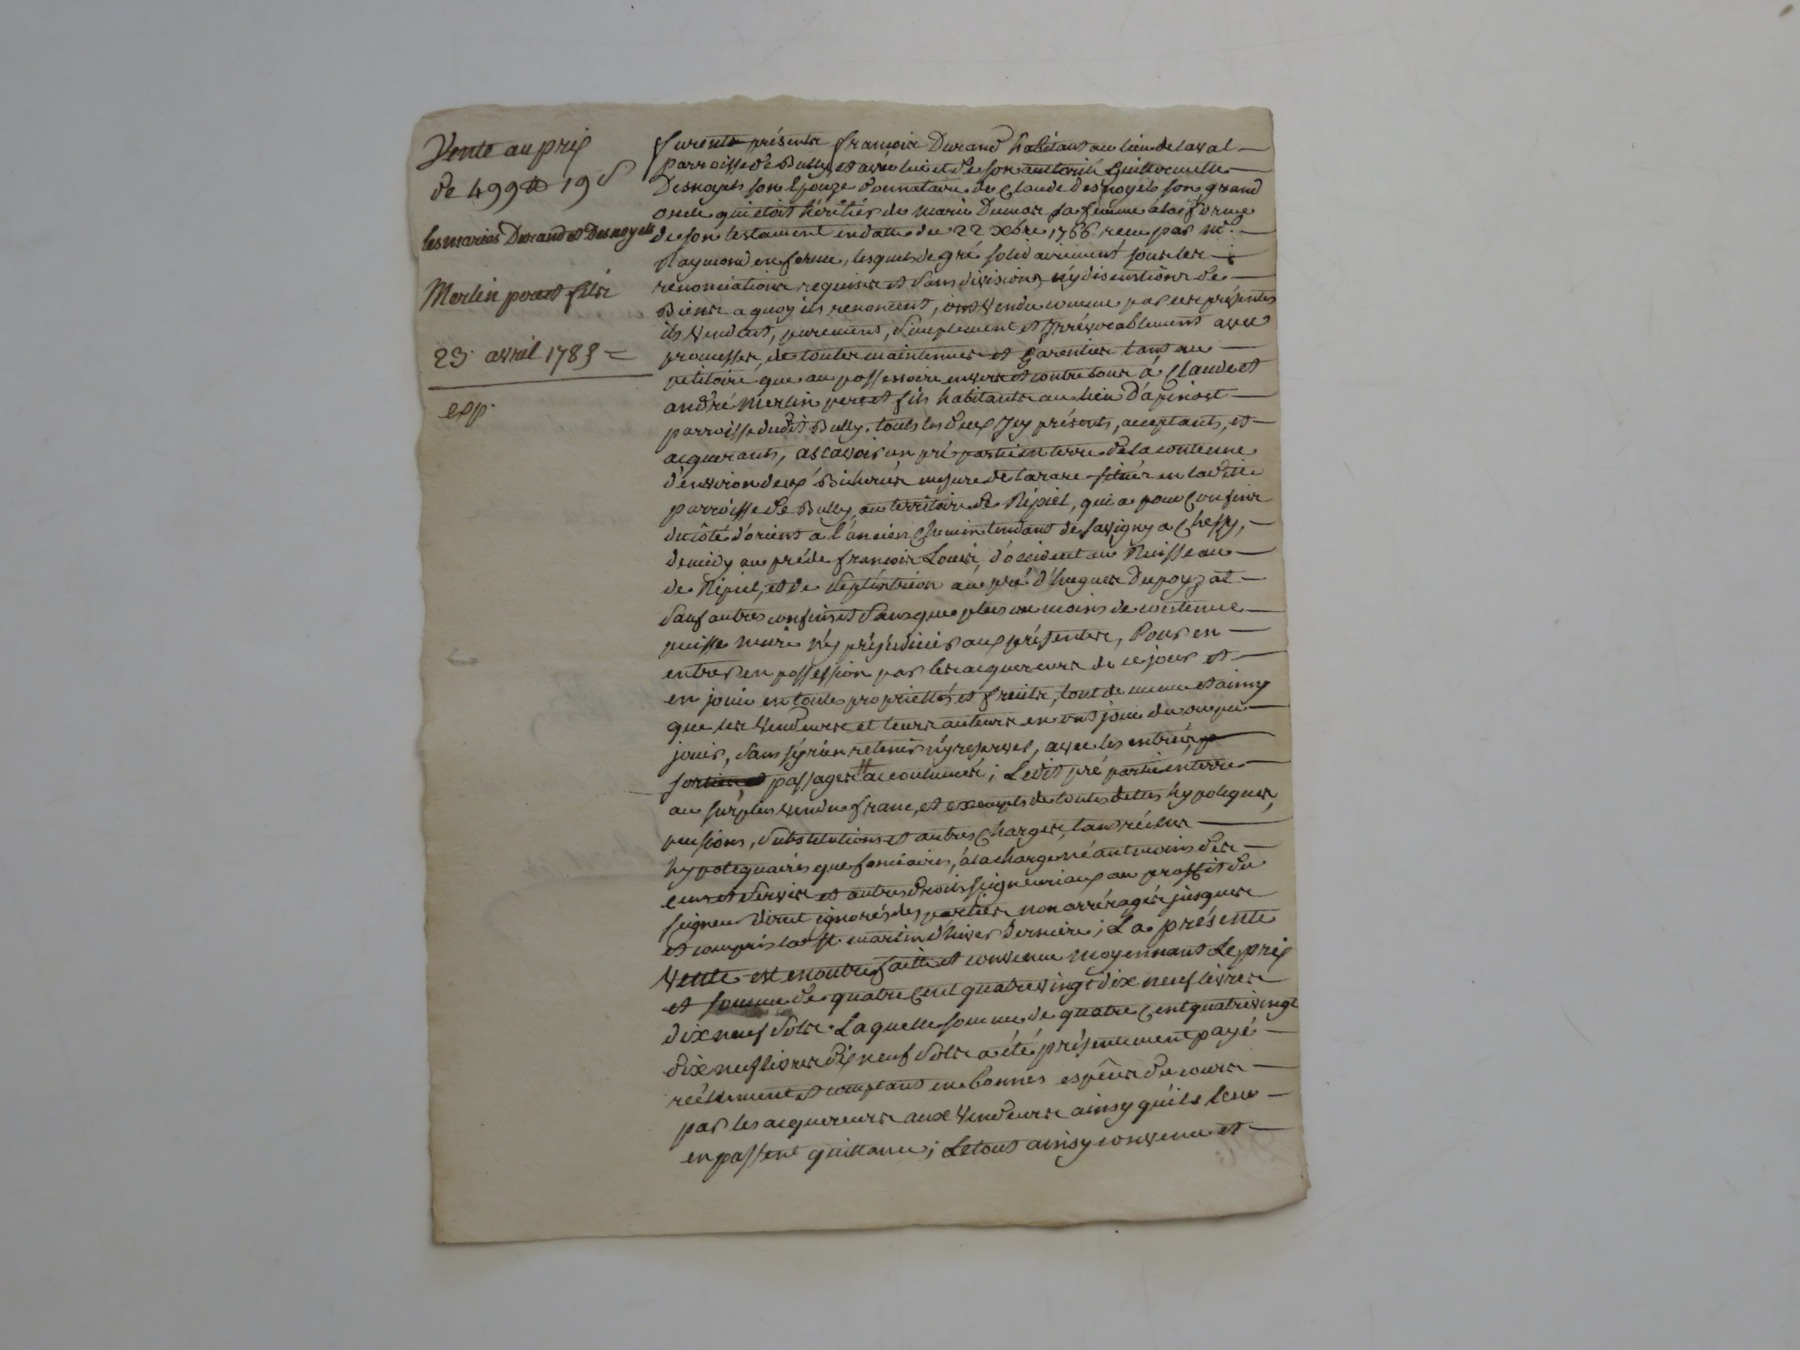 Vente au prix
de 499 ₶ 19 s
les mariés Durand et Desnoyels
Merlin pere et fils
23. avril 1783 =
exp.
furents présents françois Durand habitant au lieu de laval
parroisse de Bully, et avec lui et de son autorité Guillermette
Desnoyels son Epouze donnataire de Claude desnoyels son grand
oncle qui etoit héritier de marie Dumas sa femme a la forme
de son testament en datte du 22 xbre 1766 reçu par me.
Raymond en forme, lesquels de gré solidairement sous les
renonciations requises et sans divisions, ny discutions de
Biens a quoy ils renoncent, ont vendu comme par ces présentes
ils vendent, purement, simplement et Irrévocablement avec
promesses de toutes maintenues et garenties tant au
petitoire que au possessoire envers et contre tous à Claude et
andré Merlin pere et fils habitants au lieu d'apinost
parroisse dudit Bully. touts les deux Icy présents, acceptants, et
acquerants, ascavoir un pré partie en terre de la contenue
d'environ deux Bicherées mesure de tarare située en la ditte
parroisse de Bully, au territoire de Ripiel, qui a pour Confins
du côté d'orient a l'ancien Chemin tendant de savigny a Chessy,
de midy au pré de françois Louis, d'occident au Ruisseau
de Ripiel, et de septentrion au pré d'hugues Dupoyzat
sauf autres confins et sans que plus ou moins de contenue
puisse nuire ny préjudicier aux présentes, Pour en
entrer en possession par les acquereurs de ce jour et
en jouir en toutes propriettés et fruits, tout de meme et ainsy
que les vendeurs et leurs auteurs en ont joui du ou pu
jouir, sans s'y rien retenir ny reserver, avec les entrées
passages accoutumés; Ledit pré partie en terre
au surplus vendu franc, et exempts de toutes dettes hypoteques,
pensions, substitutions et autres Charges, tant réelles
hypotequaires que foncières, a la charge néantmoins des
cens et servis et autres droits seigneuriaux au proffit du
seigneur direct ignorés des parties non arréragés jusques
et compris la st. martin d'hiver derniere; La présente
vente est en outre faitte et convenue moyennant Le prix
et somme de quatre Cent quatre vingt dix neuf livres
dix neuf sols. Laquelle somme de quatre Cent quatre vingt
dix neuf livres dix neuf sols a été présentement payé
réellement et comptant en bonnes espèces du cours
par les acquereurs aux vendeurs ainsy qu'ils leur
en passent quittance; Le tout ainsy convenu et